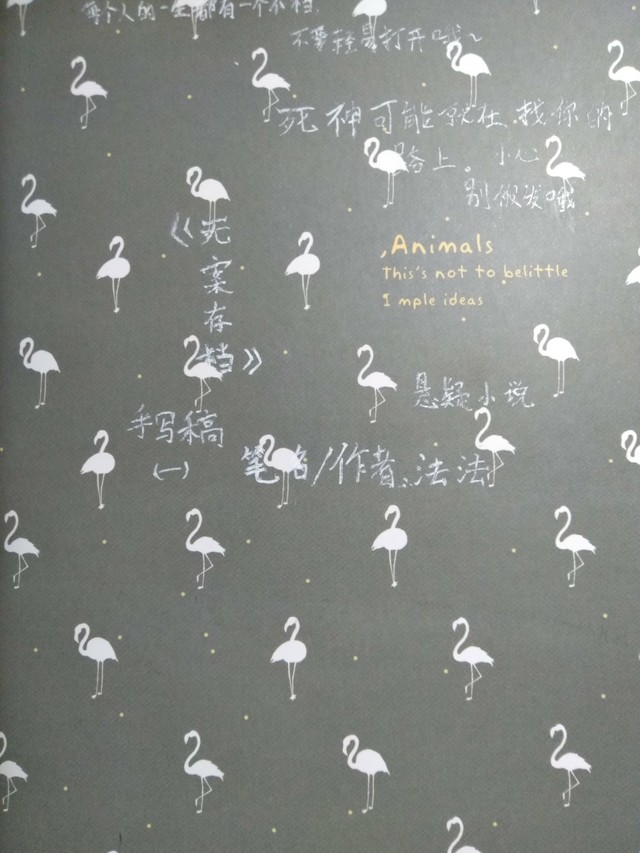 每个人的一生都有一个
不要轻易打开哦~
死神可能就在找你的
路上。小心
别
,Animals
This's not to belittle
I mple ideas
《无案存档》
悬疑小说
手写稿
(一)
笔名/作者:法法